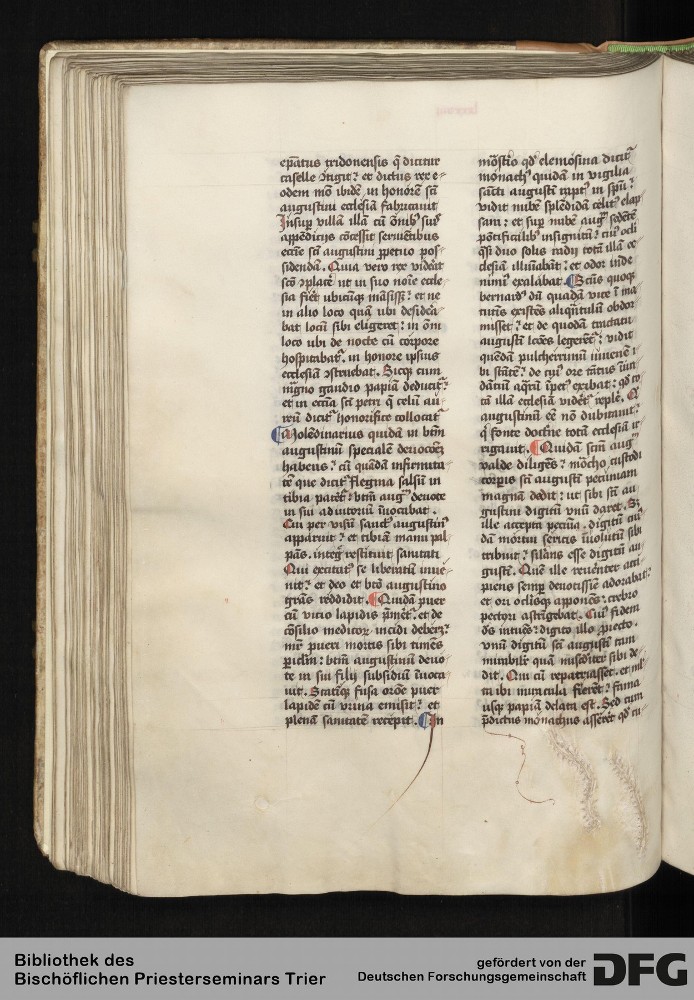 epatus tridonensis q̄ dicitur
caselle ꝯtigit? et dictus rex e-
odem mō ibidē in honorē sc̄i
augustini ecclesiā fabricauit
Insup villā illā cū om̄ibꝰ suis
appēdicijs cōcessit seruiētibus
eccīe sc̄i augustini ꝑpetuo pos-
sidendā. Quia vero rex vidērt
sc̄o ꝯplacē ut in suo noīe eccle-
sia fiēt ubicūqꝫ māsissꝫ? et ne
in alio loco quā ubi desidea-
bat locū sibi eligeret? in oīm
loco ubi de nocte cū corpore
hospitabat᷑, in honore ipsius
ecclesiā ꝯstruebat. Sicqꝫ cum
māgno gaudio papiā deducit᷑?
et in eccīa sc̄i petri q̄ celū au-
reū dicit᷑ honorifice collocat᷑
Molēdinarius quidā in btm̄
augustinū specialē deuocōꝫ
habens? cū quādā infirmita-
tē que dicit᷑ flegma salsū in
tibia patet᷑? btm̄ augꝰ deuote
in sui adiutoriū īuocabat.
Cui per visū sanctꝰ augustinꝰ
apparuit? et tibiā manu pal-
pās, integͤ restituit sanitati
Qui excitatꝰ se liberatū inue-
nit? et deo et btō augustino
grās reddidit. Quidā puer
cū vicio lapidis p̄met᷑, et de
cōsilio medicoꝝ incidi deberꝫ?
mr̄ pueri mortis sibi timēs
ꝑiclm̄? btm̄ augustinū deuo-
te in sui filij subsidiū īuoca-
uit. Statiqꝫ fusa oröe puer
lapidē cū vrina emisit? et
plenā sanitatē recepit. In
mōst̄io qd̄ elemosina dicit᷑
monachꝰ quidā in vigilia
sancti augustī rapt᷑ in sp̄u?
vidit nubē splēdidā celitꝰ elap
sam? et sup nubē augꝰ sedētē
pōtificalibꝰ insignitū? cuiꝰ ocli
q̄si duo solis radij totā illā ec
clesiā illuīabāt? et odor inde
nimiꝰ exalabat. Sc̄us quoqꝫ
bernardꝰ dū quadā vice ī ma
tinis existēs aliqͣntulū obdor
misset? et de quodā tractatu
augustī lcōes legerēt᷑? vidit
quēdā pulcherrimū iuuenē ī-
bi stātē? de cuiꝰ ore tātus inū-
datiū aq̄rū īpetꝰ exibat? qd̄ to
tā illā ecclesiā videt᷑ reple. Qͥ
augustinū eē nō dubitauit?
q̄ fonte doctrīe totā ecclesiā ir
rigauit. Quidā sc̄m augꝰ
valde diligēs? mōcho custodi
corꝑis sc̄i augustī pecuniam
magnā dedit? ut sibi sc̄i au
gustini digitū vnū daret. Sꝫ
ille accepta pecūia, digitū cuꝰ
dā mortui sericis īuolutū sibi
tribuit? silās esse digitū au-
gustī. Quē ille reuērent᷑ acci
piens semp deuotissīe adorabat?
et ori oclisqꝫ apponēs? crebro
pectori astrīgebat. Cuiꝰ fidem
dꝰs intuēs? digito illo ꝓiecto.
vnū digitū sc̄i augustī tam
mirabilr̄ quā mīsdit᷑ sibi de-
dit. Qui cū repatriasset, et ml-
ta ibi miracula fierēt? fama
usqꝫ papiā delata est. Sed cum
p̄dictus monachus asserēt qd̄ cu-
Bibliothek des
Bischöflichen Priesterseminars Trier
gefördert von der
Deutschen Forschungsgemeinschaft
DFG